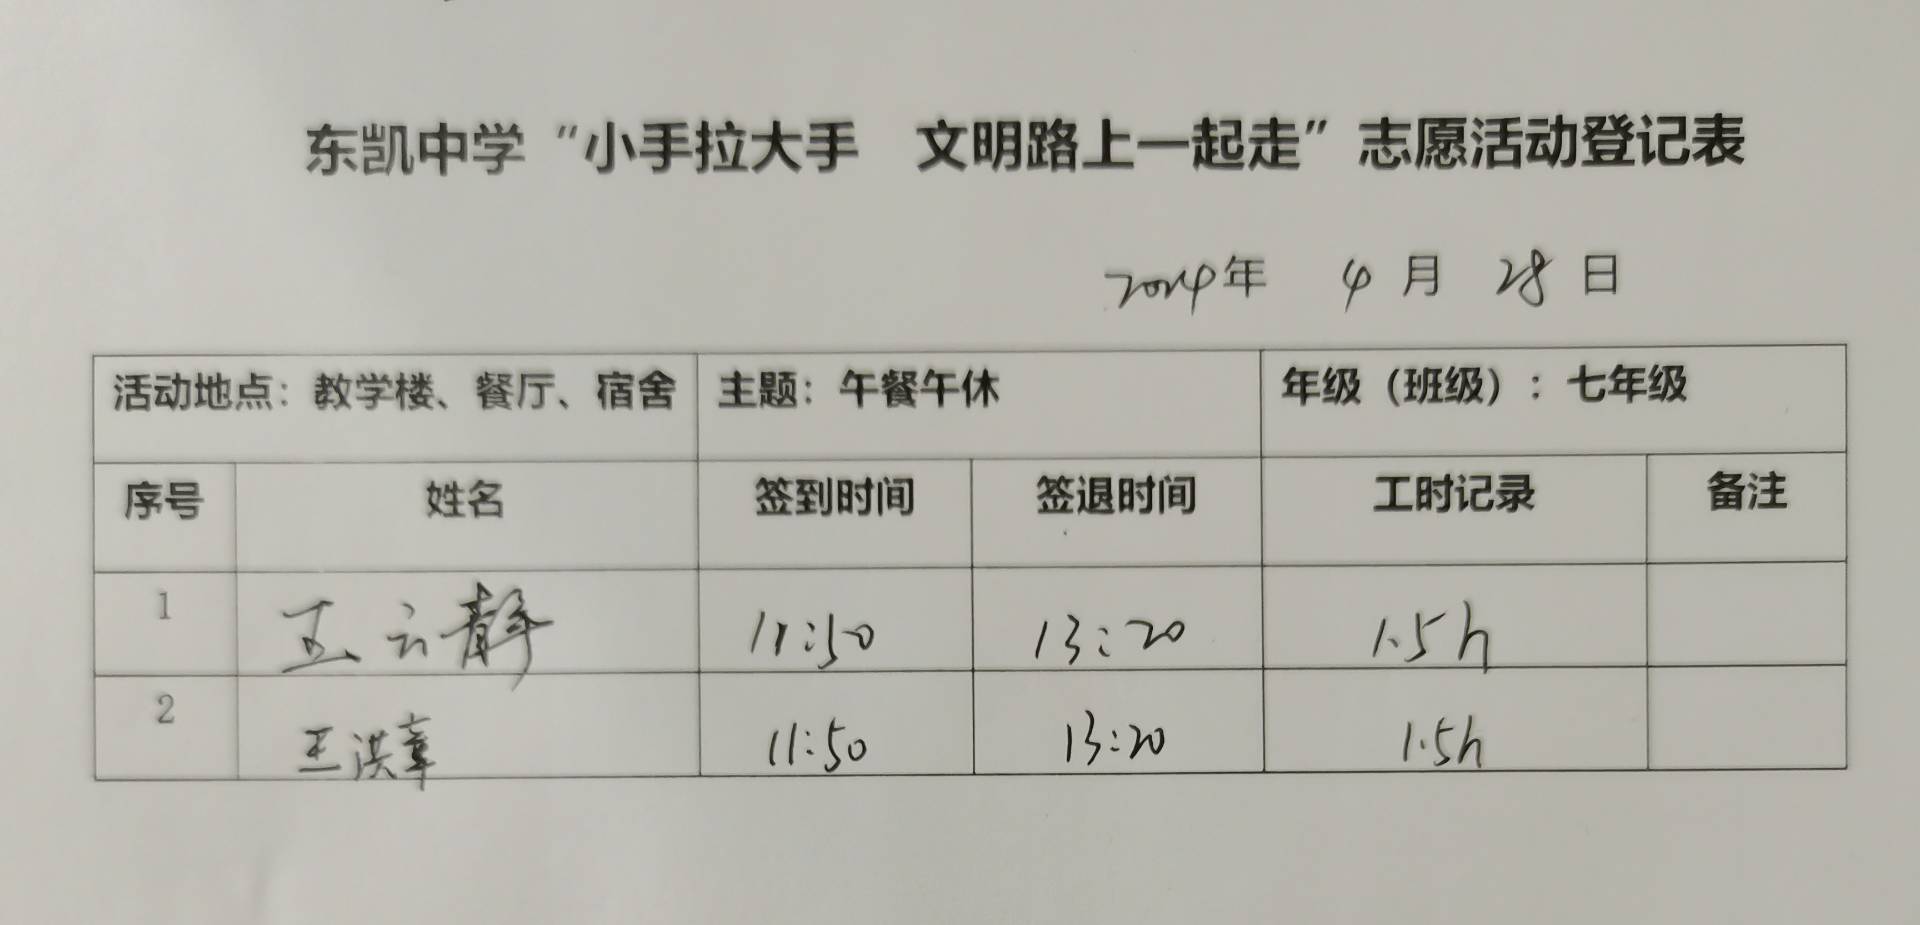 东凯中学“小手拉大手　文明路上一起走”志愿活动登记表
2024年 4月 28日
活动地点：教学楼、餐厅、宿舍 主题：午餐午休 年级（班级）：七年级
序号 姓名 签到时间 签退时间 工时记录 备注
1 王云静 11:50 13:20 1.5h
2 王洪章 11:50 13:20 1.5h